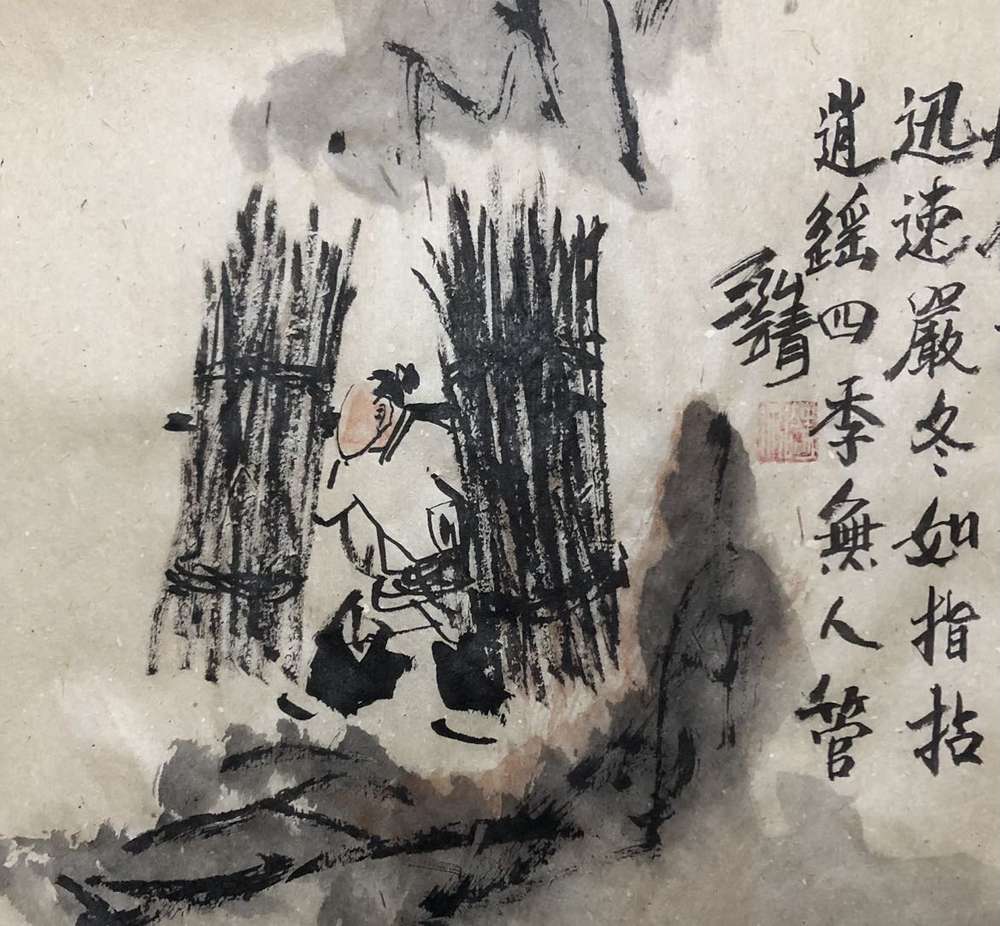 迅速嚴冬如指拈
逍繇四季無人管